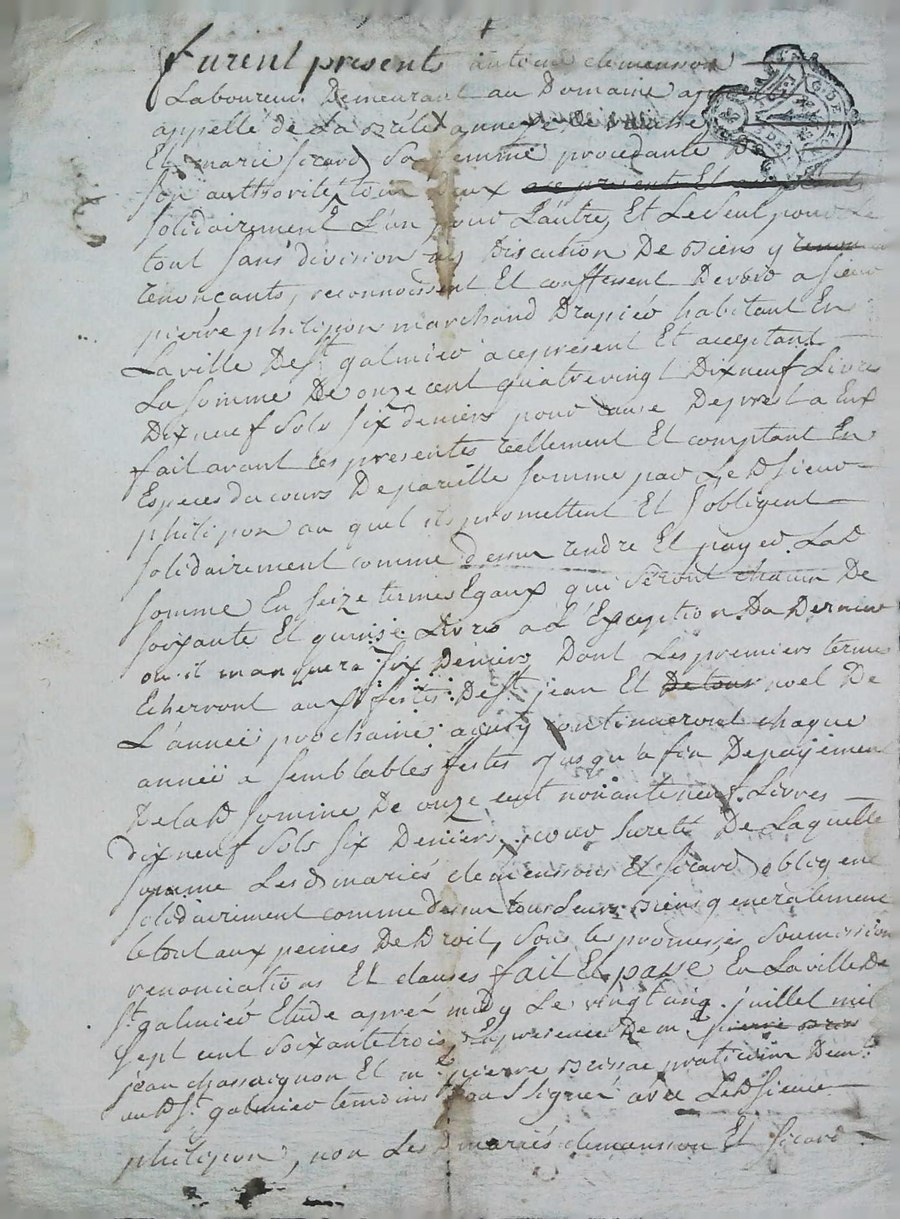 furent présents antoine clemenson
Laboureur Demeurant au Domaine
appellé de La
Et marie sicard sa femme procedante De
son authorité tous Deux
solidairement L'un pour L'autre, Et Le seul pour Le
tout sans division ny Discution De Biens y renon
renonçants, reconnoissent Et conffessent Devoir a sieur
pierre philipon marchand Drapier habitant En
La ville De st galmier acepresent Et acceptant
La somme De onze cent quatrevingt Dixneuf Livres
Dixneuf sols six deniers pour cause De prest a Eux
fait avant ces presentes reellement Et comptant En
Especes du cours De pareille somme par Le D sieur
philipon au quel ils promettent Et s'obligent
solidairement comme dessus rendre Et payer La D
somme En seize termes Egaux qui seront chacun De
soixante Et quinse Livres a L'Exception Du Dernier
ou il manquera six Deniers, Dont Les premiers termes
Echerront aux festes De st jean Et De tous noel De
L'année prochaine ainsy continueront chaque
année a semblables festes jusqu'a fin De payement
De la D somme De onze cent nonante neuf Livres
dix neuf sols six Deniers, pour sureté De Laquelle
somme Les D mariés clemenson Et sicard obligent
solidairement comme dessus tous Leurs Biens generalement
le tout aux peines De Droit, sous les promesses soumission
renonciations Et clauses fait Et passé En La ville De
st galmier Etude aprés midy Le vingt cinq juillet mil
sept cent soixante trois En presence De m pierre
jean chassaignon Et m pierre praticiens Dem
au D st galmier temoins signés avec Le D sieur
philipon, non Les D mariés clemenson Et sicard